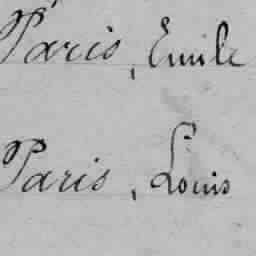 Paris, Emile
Paris, Louis